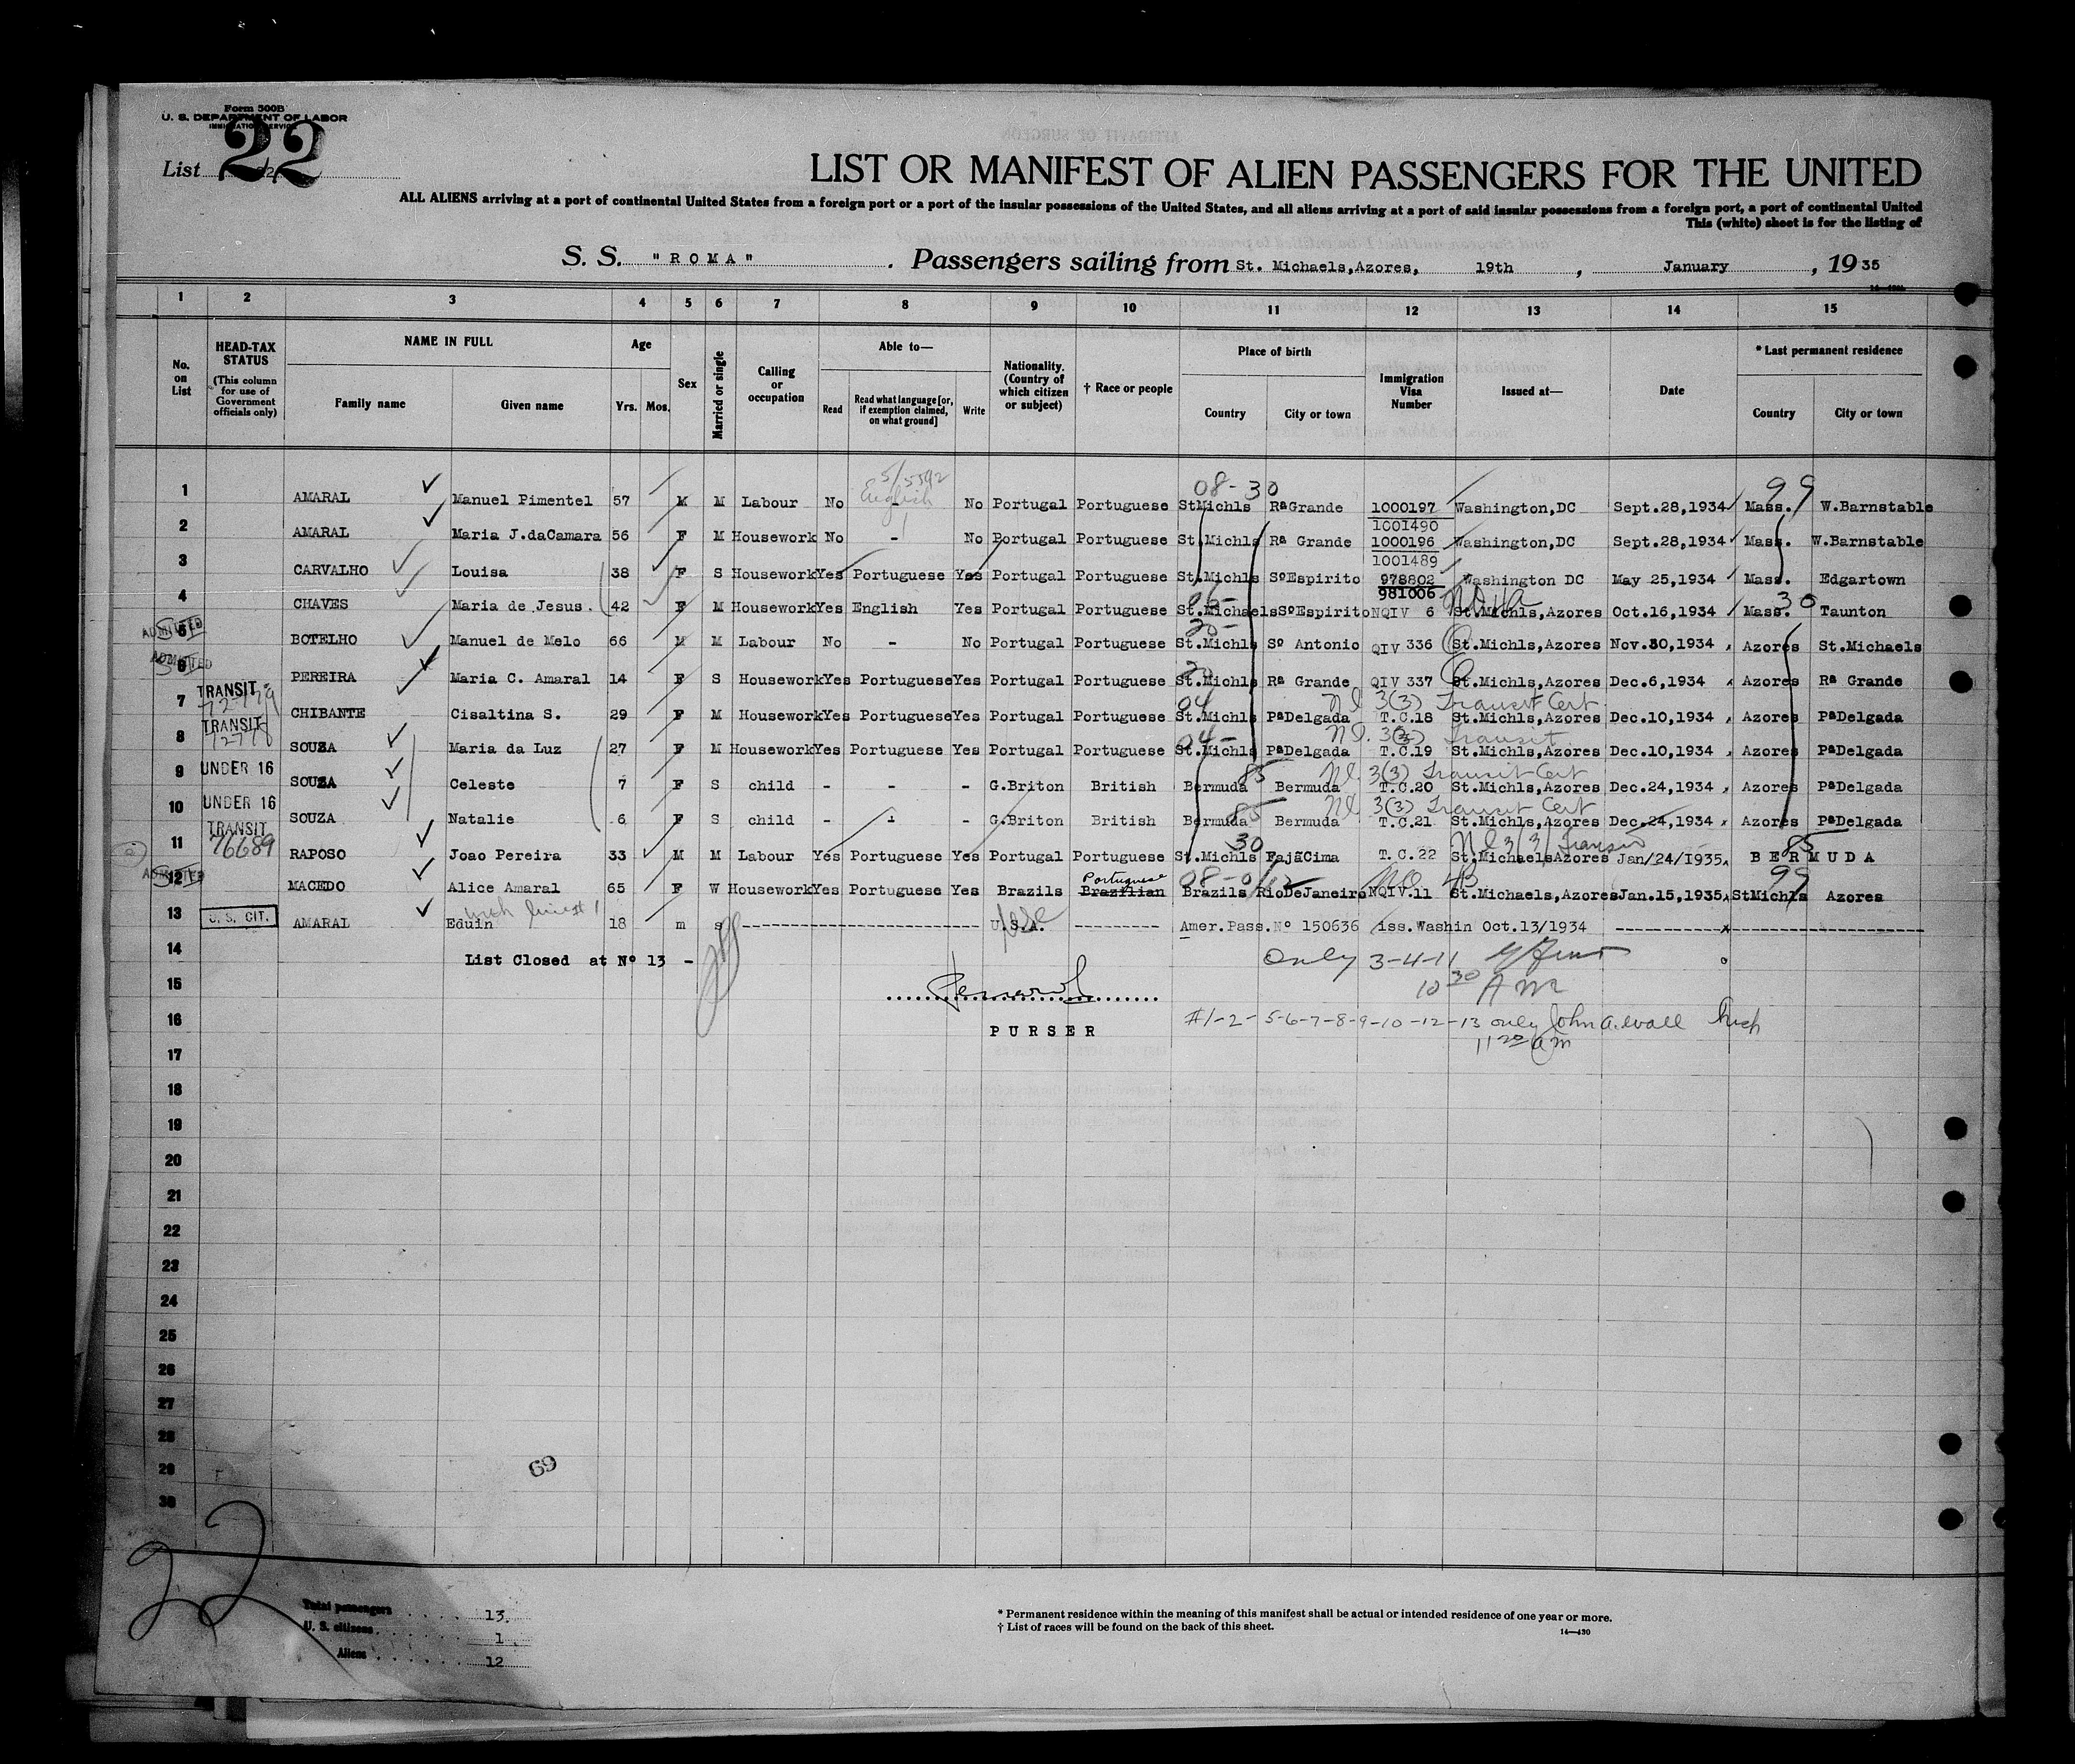 Form 500B
U. S. DEPARTMENT OF LABOR
IMMIGRATION SERVICE
22
List
LIST OR MANIFEST OF ALIEN PASSENGERS FOR THE UNITED
ALL ALIENS arriving at a port of continental United States from a foreign port or a port of the insular possessions of the United States, and all aliens arriving at a port of said insular possessions from a foreign port, a port of continental United
This (white) sheet is for the listing of
S. S. "ROMA" . Passengers sailing from St. Michaels,Azores, 19th , January , 19 35
1 2 3 4 5 6 7 8 9 10 11 12 13 14 15
No. on List
HEAD-TAX STATUS (This column for use of Government officials only)
NAME IN FULL
Family name Given name
Age
Yrs. Mos.
Sex
Married or single
Calling or occupation
Able to—
Read Read what language [or, if exemption claimed, on what ground] Write
Nationality. (Country of which citizen or subject)
† Race or people
Place of birth
Country City or town
Immigration Visa Number
Issued at—
Date
* Last permanent residence
Country City or town
5/5592
English
08-30 99
1 AMARAL Manuel Pimentel 57 M M Labour No - No Portugal Portuguese StMichls RªGrande 1000197 Washington,DC Sept.28,1934 Mass. W.Barnstable
1001490
2 AMARAL Maria J.daCamara 56 F M Housework No - No Portugal Portuguese St.Michls Rª Grande 1000196 Washington,DC Sept.28,1934 Mass. W.Barnstable
1001489
3 CARVALHO Louisa 38 F S Housework Yes Portuguese Yes Portugal Portuguese St.Michls SºEspirito 978802 Washington DC May 25,1934 Mass. Edgartown
981006
4 CHAVES Maria de Jesus. 42 F M Housework Yes English Yes Portugal Portuguese St.Michaels SºEspirito NQIV 6 St.Michls,Azores Oct.16,1934 Mass. 30 Taunton
ADMITTED
5 BOTELHO Manuel de Melo 66 M M Labour No - No Portugal Portuguese St.Michls Sº Antonio QIV 336 St.Michls,Azores Nov.30,1934 Azores St.Michaels
ADMITTED
6 PEREIRA Maria C. Amaral 14 F S Housework Yes Portuguese Yes Portugal Portuguese St.Michls Rª Grande QIV 337 St.Michls,Azores Dec.6,1934 Azores Rª Grande
TRANSIT
04 3(3) Transit Cert
7 CHIBANTE Cisaltina S. 29 F M Housework Yes Portuguese Yes Portugal Portuguese St.Michls PªDelgada T.C.18 St.Michls,Azores Dec.10,1934 Azores PªDelgada
TRANSIT
04- 3(3) Transit
8 SOUZA Maria da Luz 27 F M Housework Yes Portuguese Yes Portugal Portuguese St.Michls PªDelgada T.C.19 St.Michls,Azores Dec.10,1934 Azores PªDelgada
85 3(3) Transit Cert
9 UNDER 16 SOUZA Celeste 7 F S child - - - G.Briton British Bermuda Bermuda T.C.20 St.Michls,Azores Dec.24,1934 Azores PªDelgada
85 3(3) Transit Cert
10 UNDER 16 SOUZA Natalie 6 F S child - - - G.Briton British Bermuda Bermuda T.C.21 St.Michls,Azores Dec.24,1934 Azores PªDelgada
TRANSIT
76689 30 3(3) Transit 85
11 RAPOSO Joao Pereira 33 M M Labour Yes Portuguese Yes Portugal Portuguese St.Michls FajãCima T.C.22 St.MichaelsAzores Jan/24/1935 BERMUDA
ADMITTED
Portuguese 99
12 MACEDO Alice Amaral 65 F W Housework Yes Portuguese Yes Brazils Brazilian Brazils RioDeJaneiro NQIV.11 St.Michaels,Azores Jan.15,1935 StMichls Azores
13 U. S. CIT. AMARAL Eduin 18 m s U.S.A. Amer.Pass.Nº 150636 iss.Washin Oct.13/1934
14 List Closed at Nº 13 -
Only 3-4-11
10 30 AM
15
PURSER
16 #1-2-5-6-7-8-9-10-12-13 only John A. Wall Insp
11 20 am
17
18
19
20
21
22
23
24
25
26
27
28
29
30
69
22
Total passengers 13.
U. S. citizens 1
Aliens 12
* Permanent residence within the meaning of this manifest shall be actual or intended residence of one year or more.
† List of races will be found on the back of this sheet.
14—430